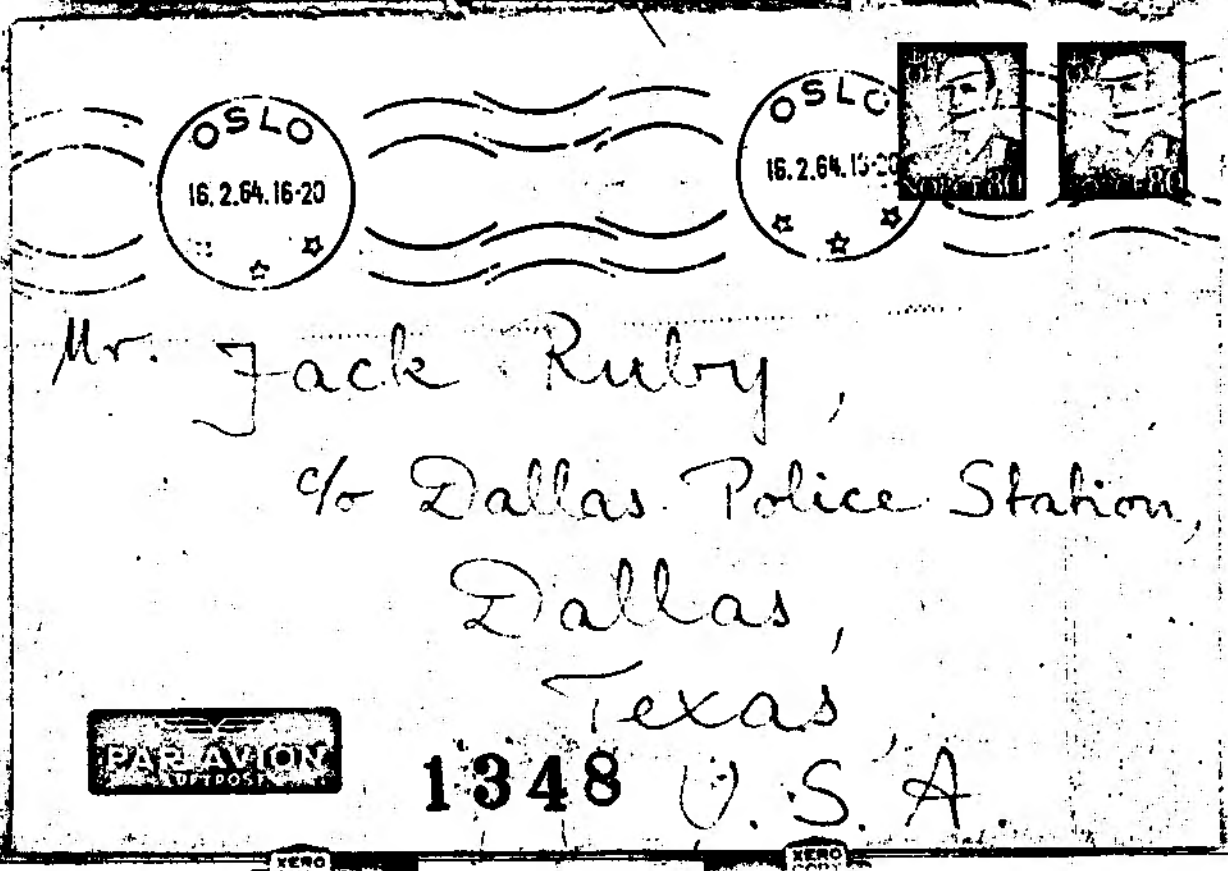 OSLO
16.2.64.16-20
OSLO
16.2.64.
80
80
Mr. Jack Ruby,
c/o Dallas Police Station,
Dallas,
Texas,
U.S.A.
PAR AVION
LUFTPOST
1348
XERO
XERO
COPY